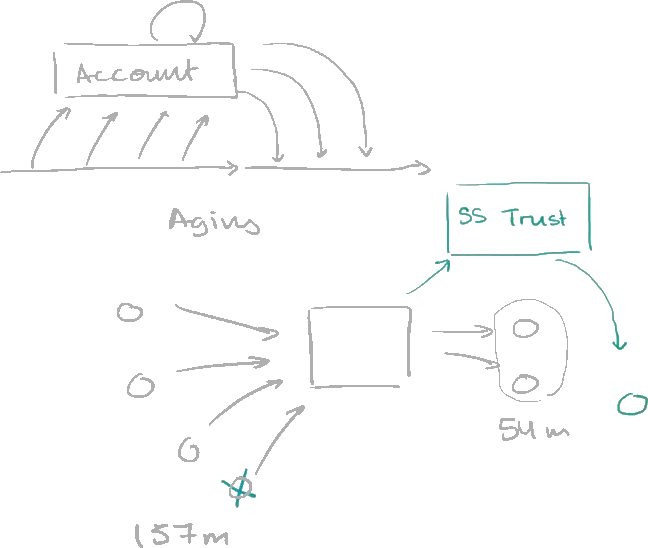 Account
Aging
SS Trust
54m
157m